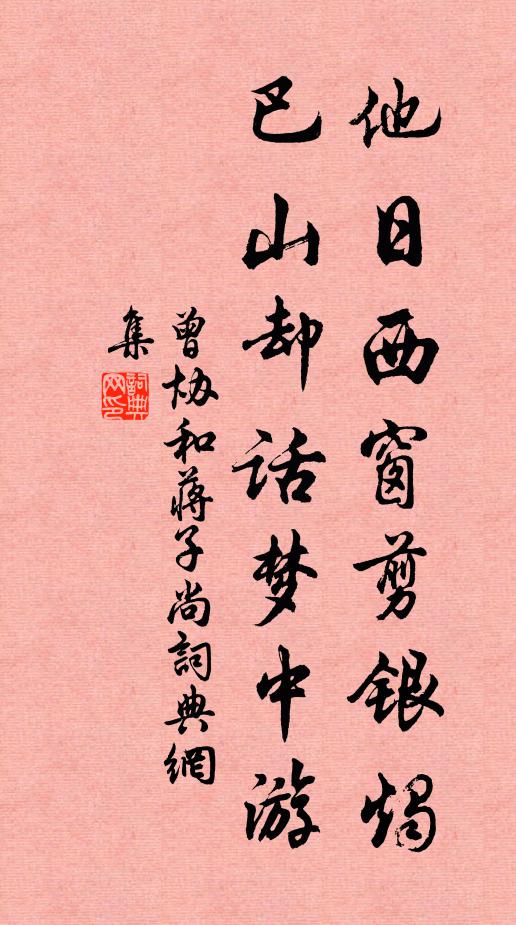 他日西窗剪银烛
巴山却话梦中游
曾协和蒋子尚詞典網
集
詞典
网印